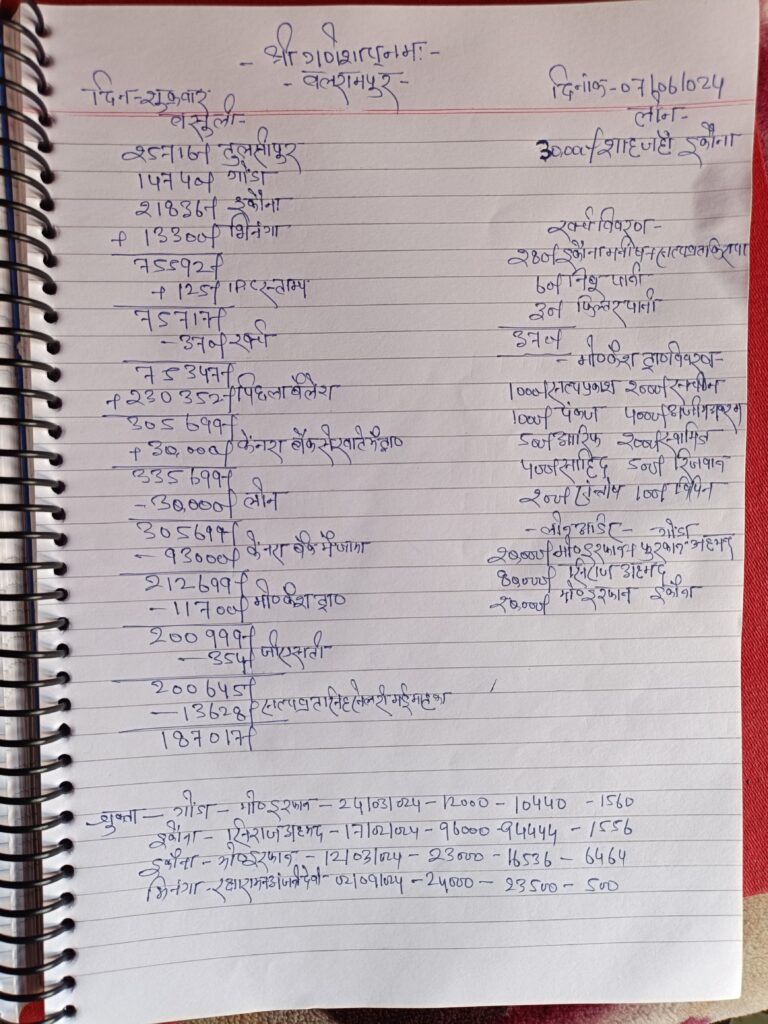 - श्री गणेशाय नमः -
- बलरामपुर -
दिन - शुक्रवार
दिनांक - 07/06/024
वसुली -
25716/ तुलसीपुर
14740/ गोंडा
21836/ इकौना
+ 13300/ भिनंगा
75592/
+ 125/ स्ताम्प
75717/
- 370/ खर्च
75347/
+ 230352/ पिछला बैलेंश
305699/
+ 30,000/ केनरा बैंक से खाते में ट्रा०
335699/
- 30,000/ लोन
305699/
- 93000/ केनरा बैंक में जमा
212699/
- 11700/ मो० कैश ट्रा०
200999/
- 354/ जीएसती
200645/
- 13628/ मई माह का
187017/
लोन -
30,000/ शाहजहाँ इकौना
खर्च विवरण -
280/ इकौना
60/ पानी
30/ फिल्टर पानी
370/
- मो० कैश ट्रा० विवरण -
1000/ सत्यप्रकाश 2000/ सचीन
1000/ पंकज 4000/
500/ आरिफ 2000/
400/ साहिद 500/ रिजवान
200/ संन्तोष 100/ विपिन
- लोन आडिट - गोंडा
20,000/ मो० इरफान फुरकान अहमद
80,000/ सिराज अहमद
20,000/ मो० इरफान इकौना
चुक्ता - गोंडा - मो० इरफान - 24/03/024 - 12000 - 10440 - 1560
इकौना - सिराज अहमद - 17/02/024 - 96000 - 94444 - 1556
इकौना - मो० इरफान - 12/03/024 - 23000 - 16536 - 6464
भिनंगा - 02/09/024 - 24000 - 23500 - 500